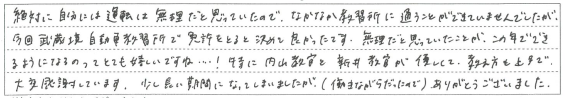 絶対に自分には運転は無理だと思っていたので、なかなか教習所に通うことができていませんでしたが、
今回武蔵境自動車教習所で免許をとると決めて良かったです。無理だと思っていたことが、この年でできるようになるのってとても嬉しいですね…！特に内山教官と新井教官が優しくて、教え方も上手で、
大変感謝しています。少し長い期間になってしまいましたが、(働きながらだったので)ありがとうございました。